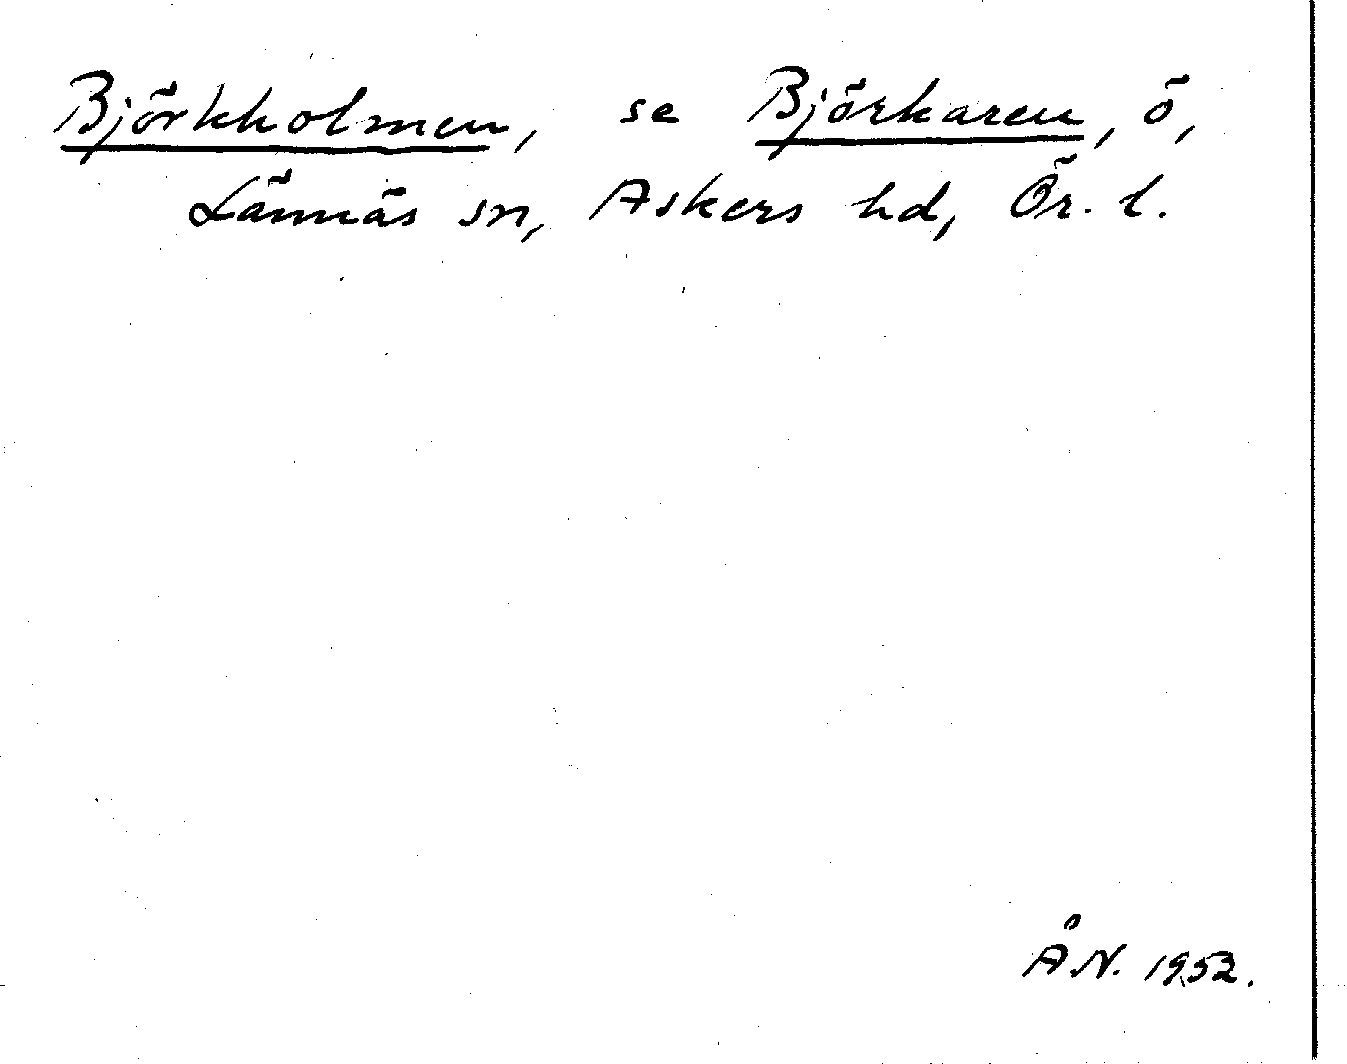 Björkholmen, se Björkaren, ö,
Lännäs sn, Askers hd, Ör. l.
Å.N. 1952.